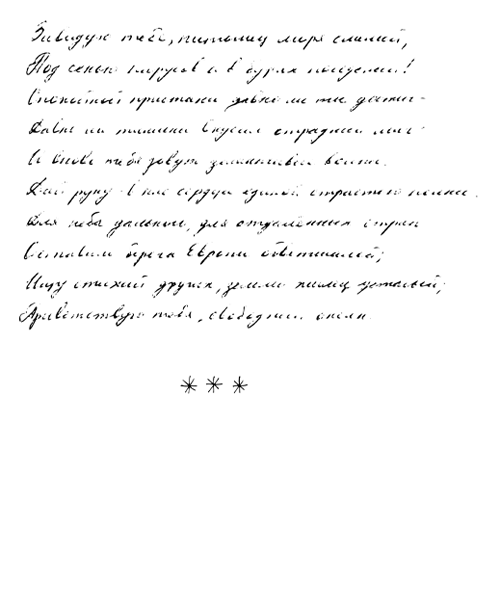 Завидую тебе, питомец моря смелый,
Под сенью парусов и в бурях поседелый!
Спокойной пристани давно ли ты достиг -
Давно ли тишины вкусил отрадный миг -
И вновь тебя зовут заманчивые волны.
Дай руку - в нас сердца единой страстью полны.
Для неба дальнего, для отдаленных стран
Оставим берега Европы обветшалой;
Ищу стихий других, земли жилец усталый;
Приветствую тебя, свободный океан.
* * *